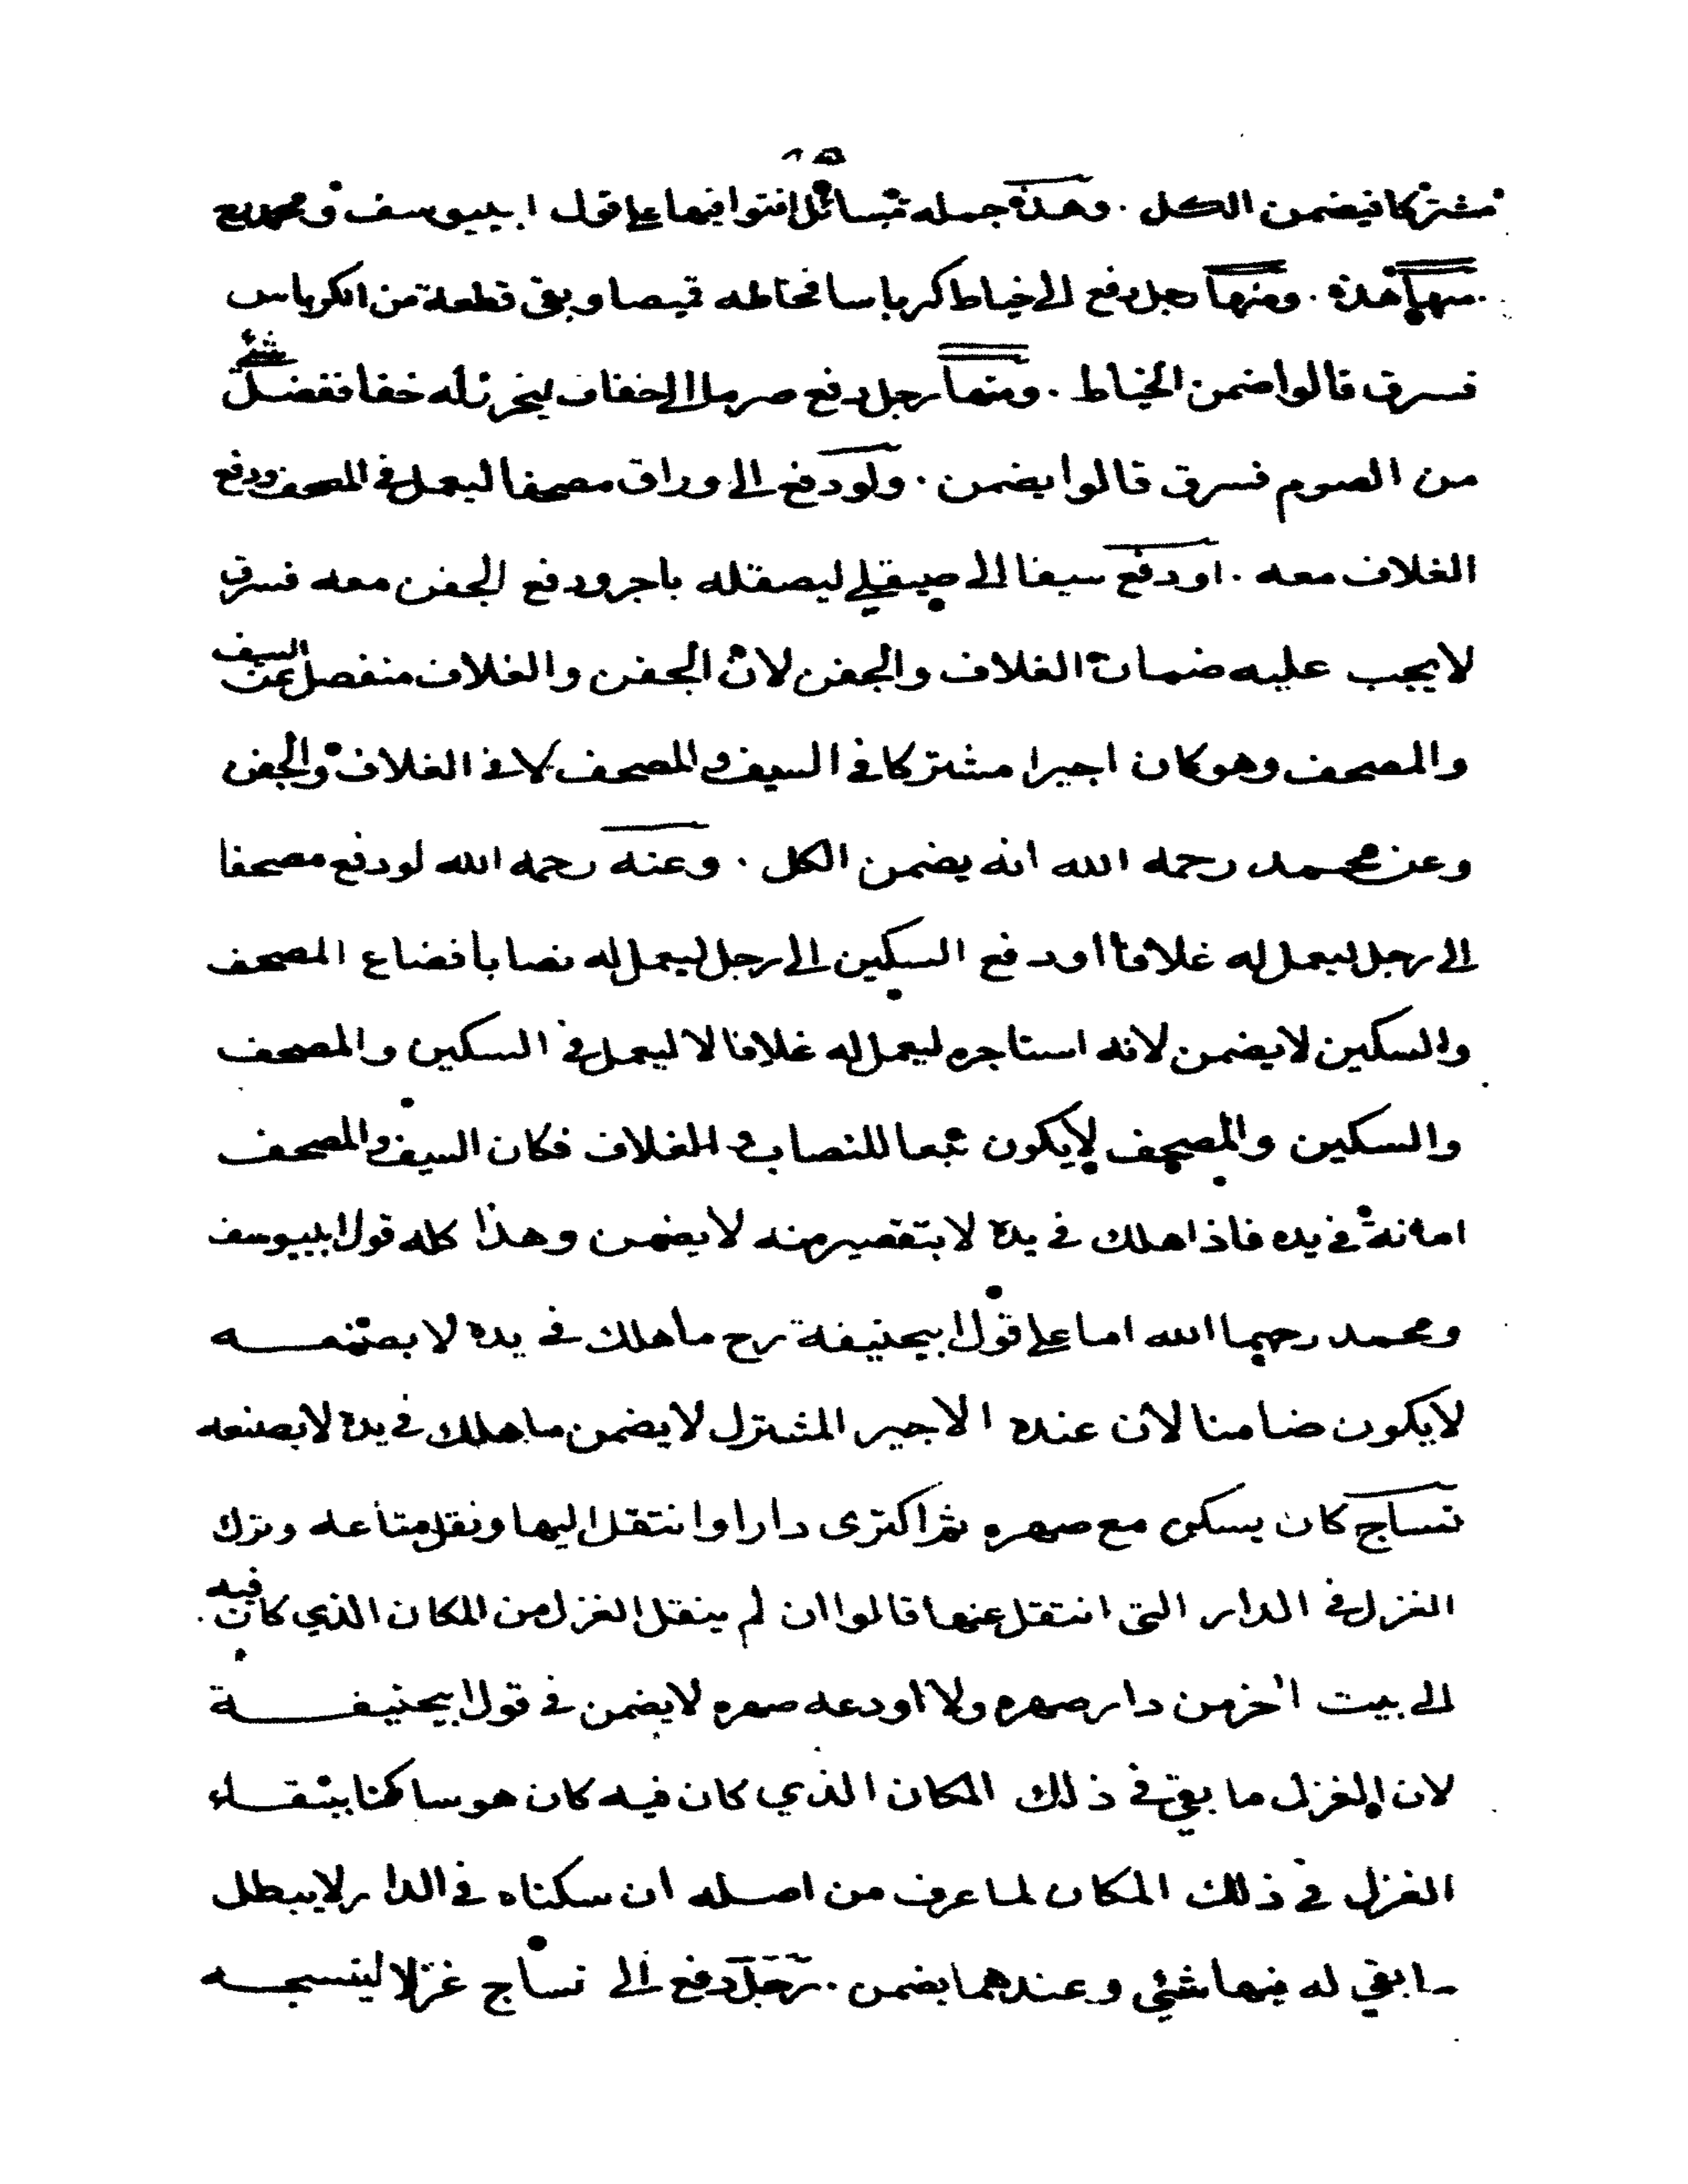 مشتركا فيضمن الكل . وهذه جملة مسائل افتوا فيها على قول ابييوسف ومحمد رح
منها هذه . ومنها رجل دفع الى خياط كرباسا فخاطه قميصا وبقى قطعة من الكرباس
فسرق قالوا ضمن الخياط . ومنها رجل دفع صرما الى خفاف ليخرز له خفا ففضل شئ
من الصرم فسرق قالوا يضمن . ولو دفع الى وراق مصحفا ليعمل في المصحف ودفع
الغلاف معه . او دفع سيفا الى صيقلي ليصقله باجر ودفع الجفن معه فسرق
لا يجب عليه ضمان الغلاف والجفن لان الجفن والغلاف منفصل عن السيف
والمصحف وهو كان اجيرا مشتركا في السيف والمصحف لا في الغلاف والجفن
وعن محمد رحمه الله انه يضمن الكل . وعنه رحمه الله لو دفع مصحفا
الى رجل ليعمل له غلافا او دفع السكين الى رجل ليعمل له نصابا فضاع المصحف
والسكين لا يضمن لانه استاجره ليعمل له غلافا لا ليعمل في السكين والمصحف
والسكين والمصحف لا يكون تبعا للنصاب و الغلاف فكان السيف والمصحف
امانة في يده فاذا هلك في يده لا بتقصير منه لا يضمن وهذا كله قول ابييوسف
ومحمد رحهما الله اما على قول ابيحنيفة رح ما هلك في يده لا بصنعه
لا يكون ضامنا لان عنده الاجير المشترك لا يضمن ما هلك في يده لا بصنعه
نساج كان يسكن مع صهره ثم اكترى دارا وانتقل اليها ونقل متاعه وترك
الغزل في الدار التى انتقل عنها قالوا ان لم ينقل الغزل من المكان الذي كان فيه
الى بيت اخر من دار صهره ولا اودعه صهره لا يضمن في قول ابيحنيفة
لان الغزل ما بقي في ذلك المكان الذي كان فيه كان هو ساكنا ببقاء
الغزل في ذلك المكان لما عرف من اصله ان سكناه في الدار لا يبطل
ما بقي له فيها شئي وعندهما يضمن . رجل دفع الى نساج غزلا لينسجه